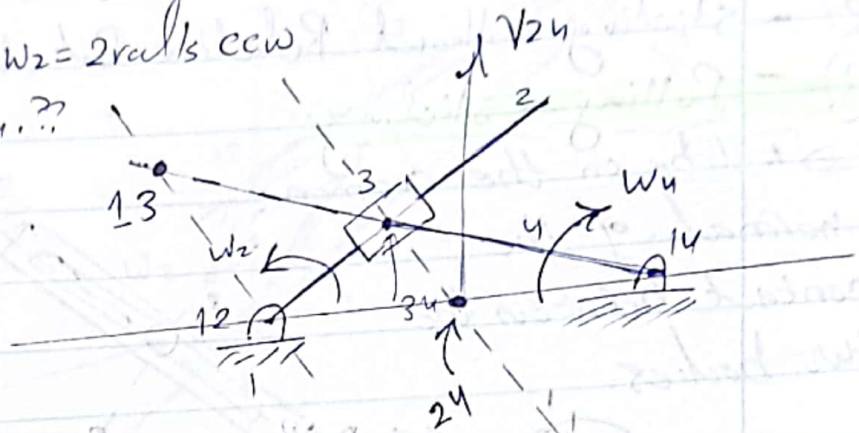 W2 = 2rad/s ccw
V24
..??
2
3
13
W4
W2
4
14
12
34
1
24